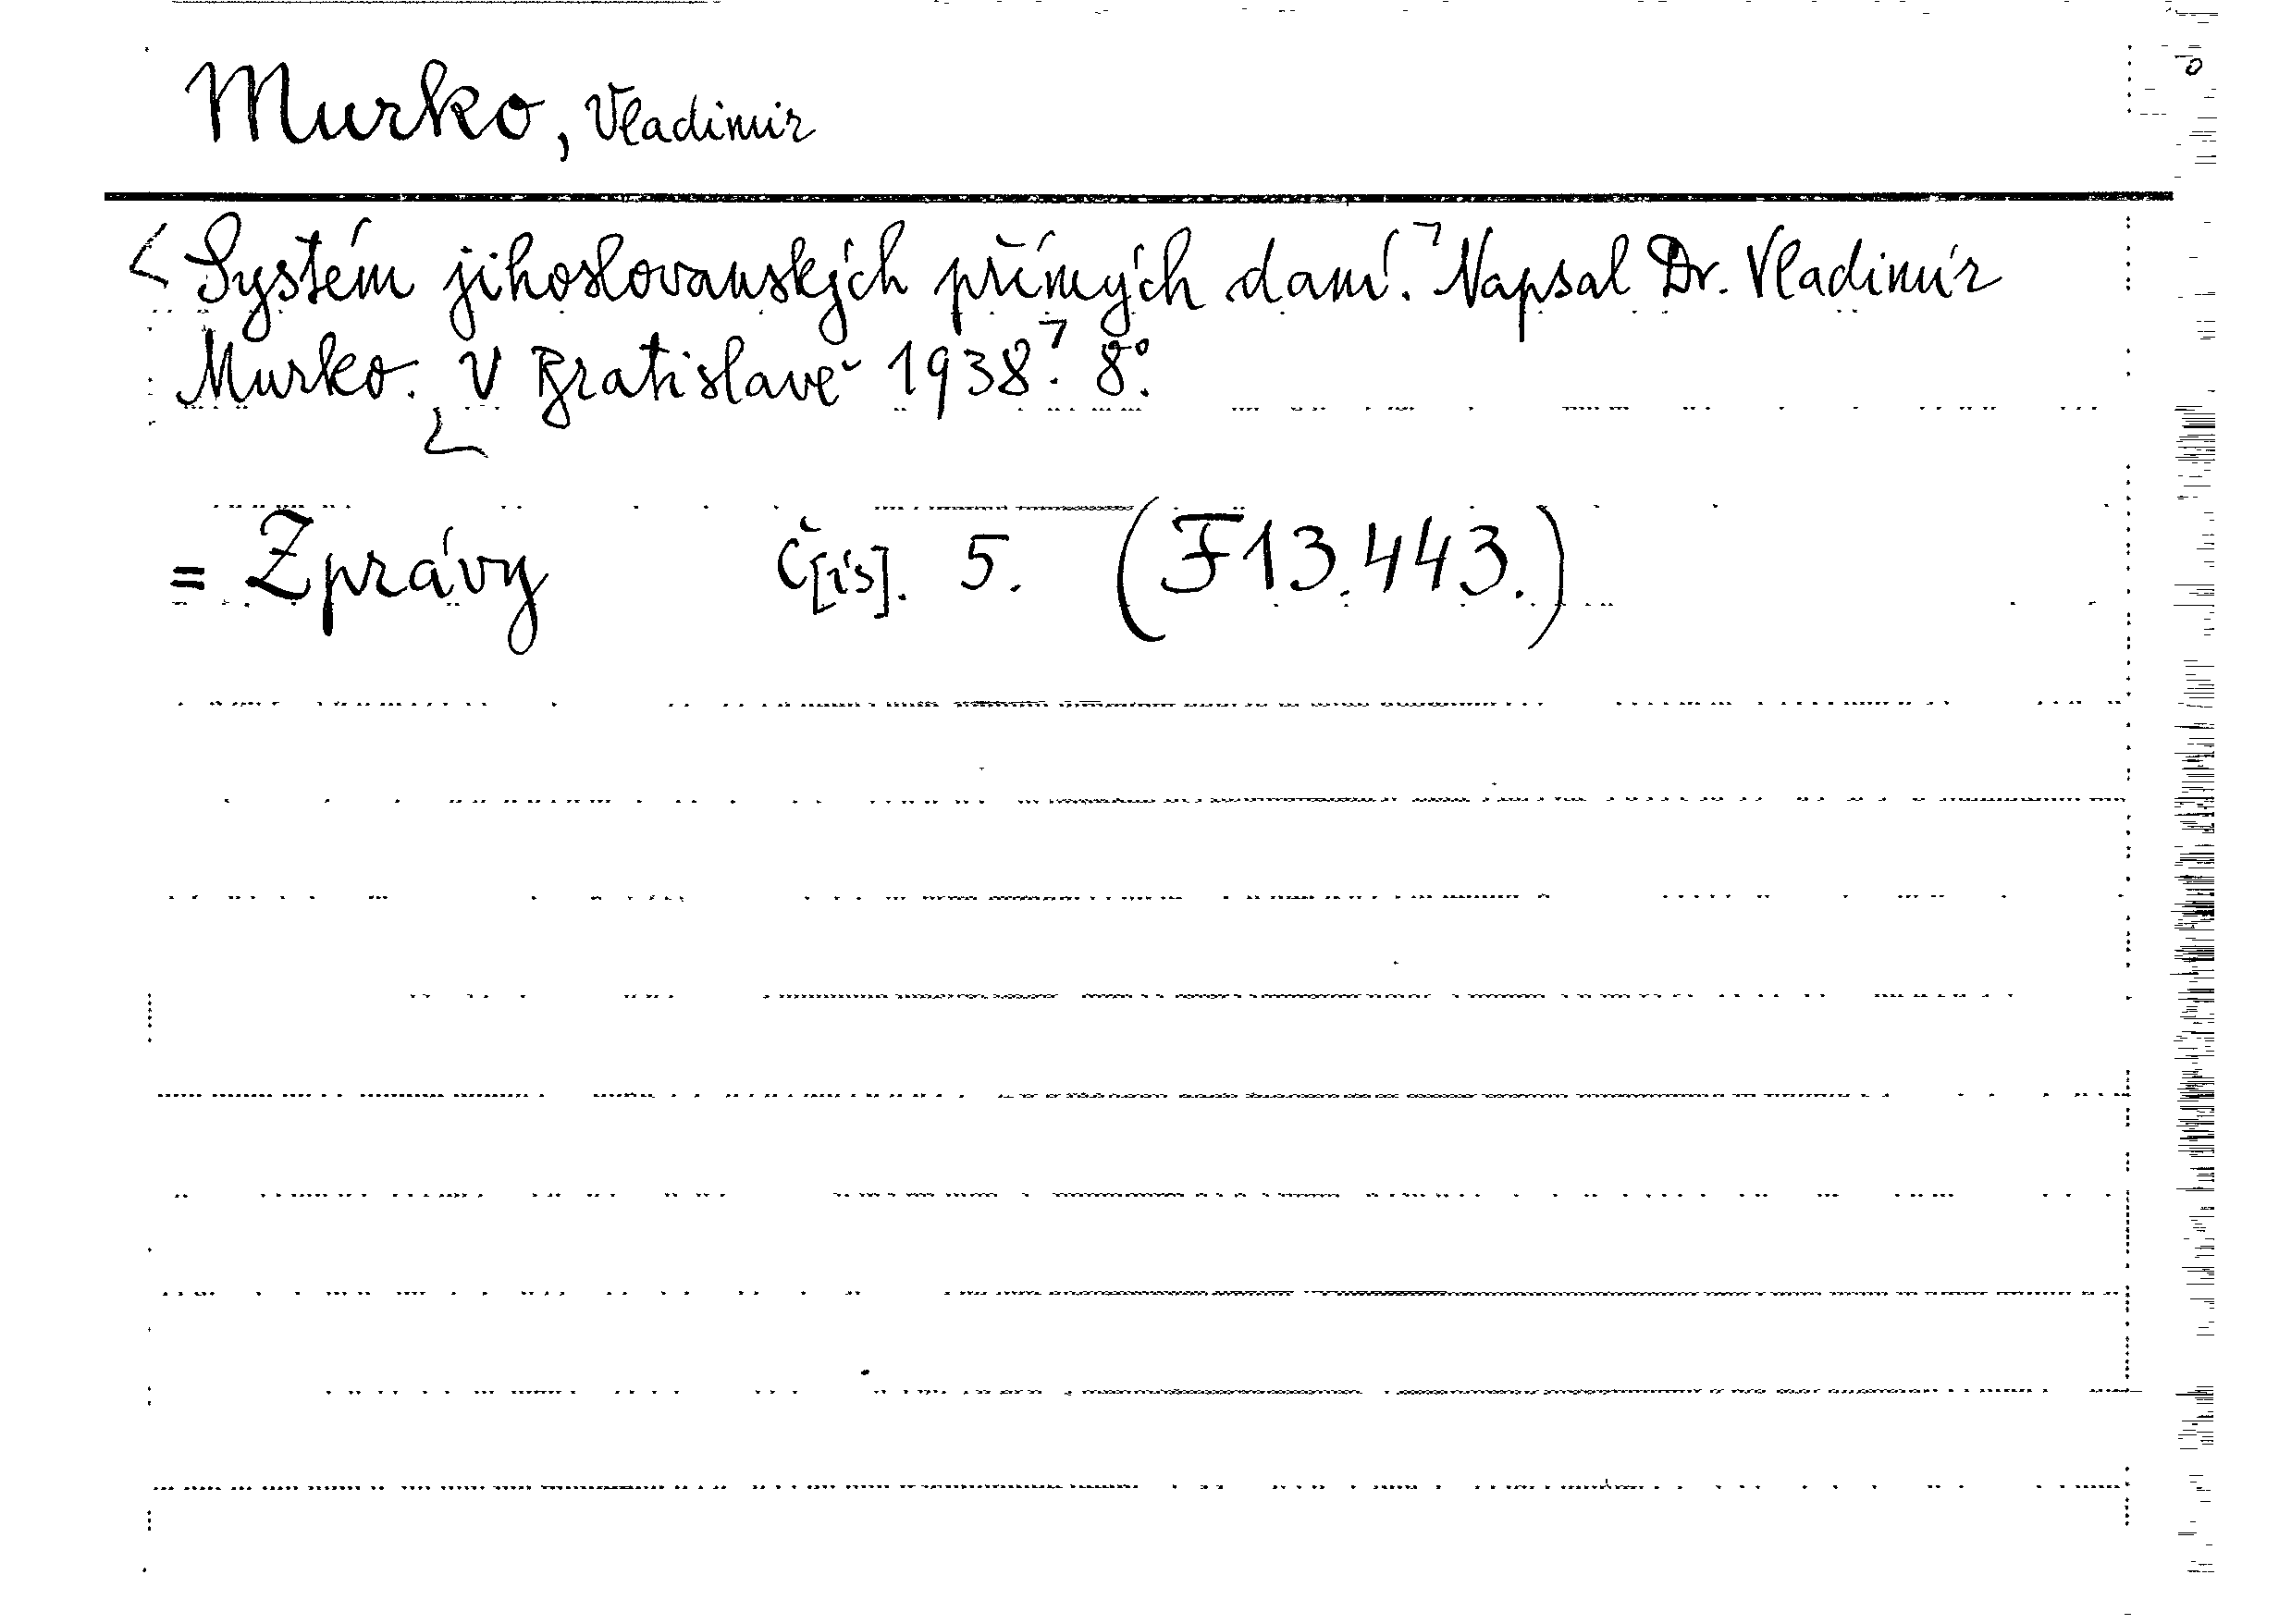 Murko, Vladimir
Systém jihoslovanských přímých daní. Napsal Dr. Vladimír
Murko. V Bratislavě 1938. 8°.
= Zprávy Č[ís]. 5. (F13.443.)